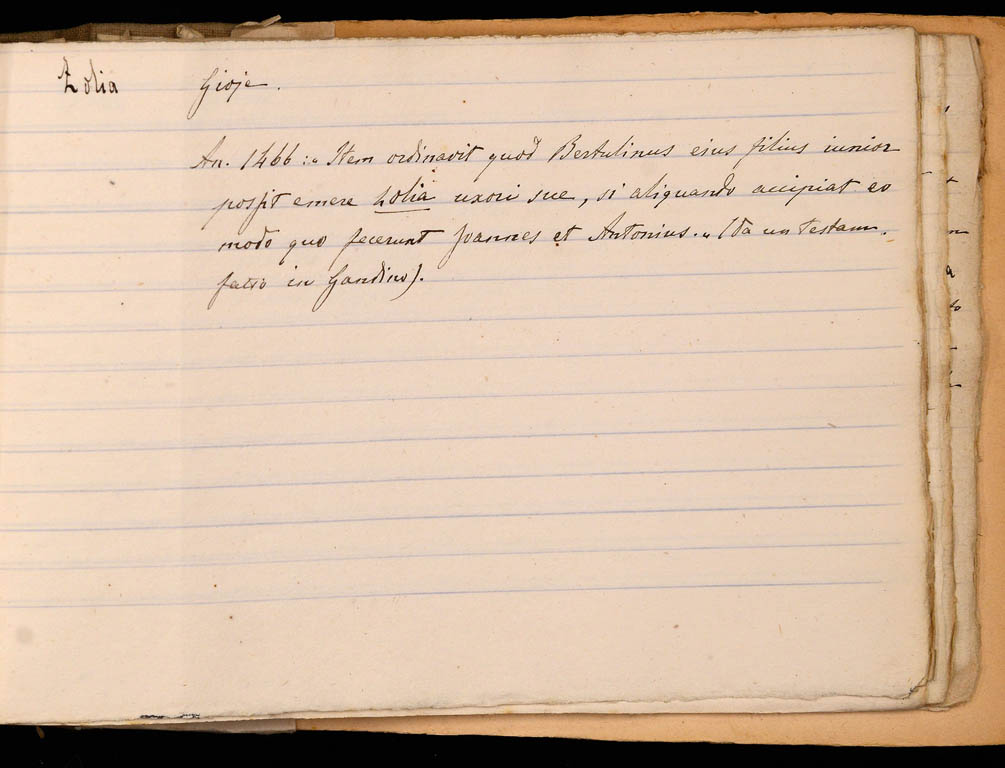 Zolia Gioje.
An. 1466:„ Item ordinavit quod Bertulinus eius filius iunior
possit emere zolia uxori sue, si aliquando accipiat eo
modo quo fecerunt Joannes et Antonius.„ (Da un testam.
fatto in Gandino).